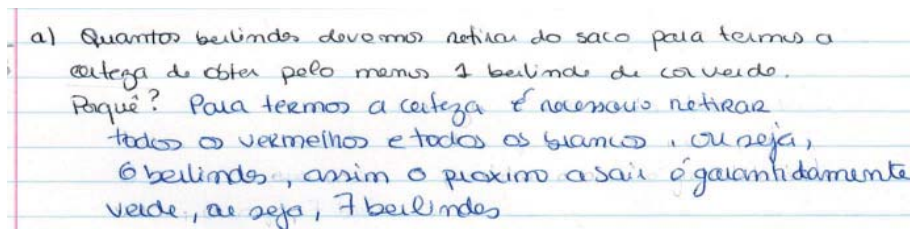 a) Quantos berlindes devemos retirar do saco para termos a
certeza de obter pelo menos 1 berlinde de cor verde.
Porquê? Para termos a certeza é necessário retirar
todos os vermelhos e todos os brancos, ou seja,
6 berlindes, assim o proximo a sair é garantidamente
verde, ou seja, 7 berlindes